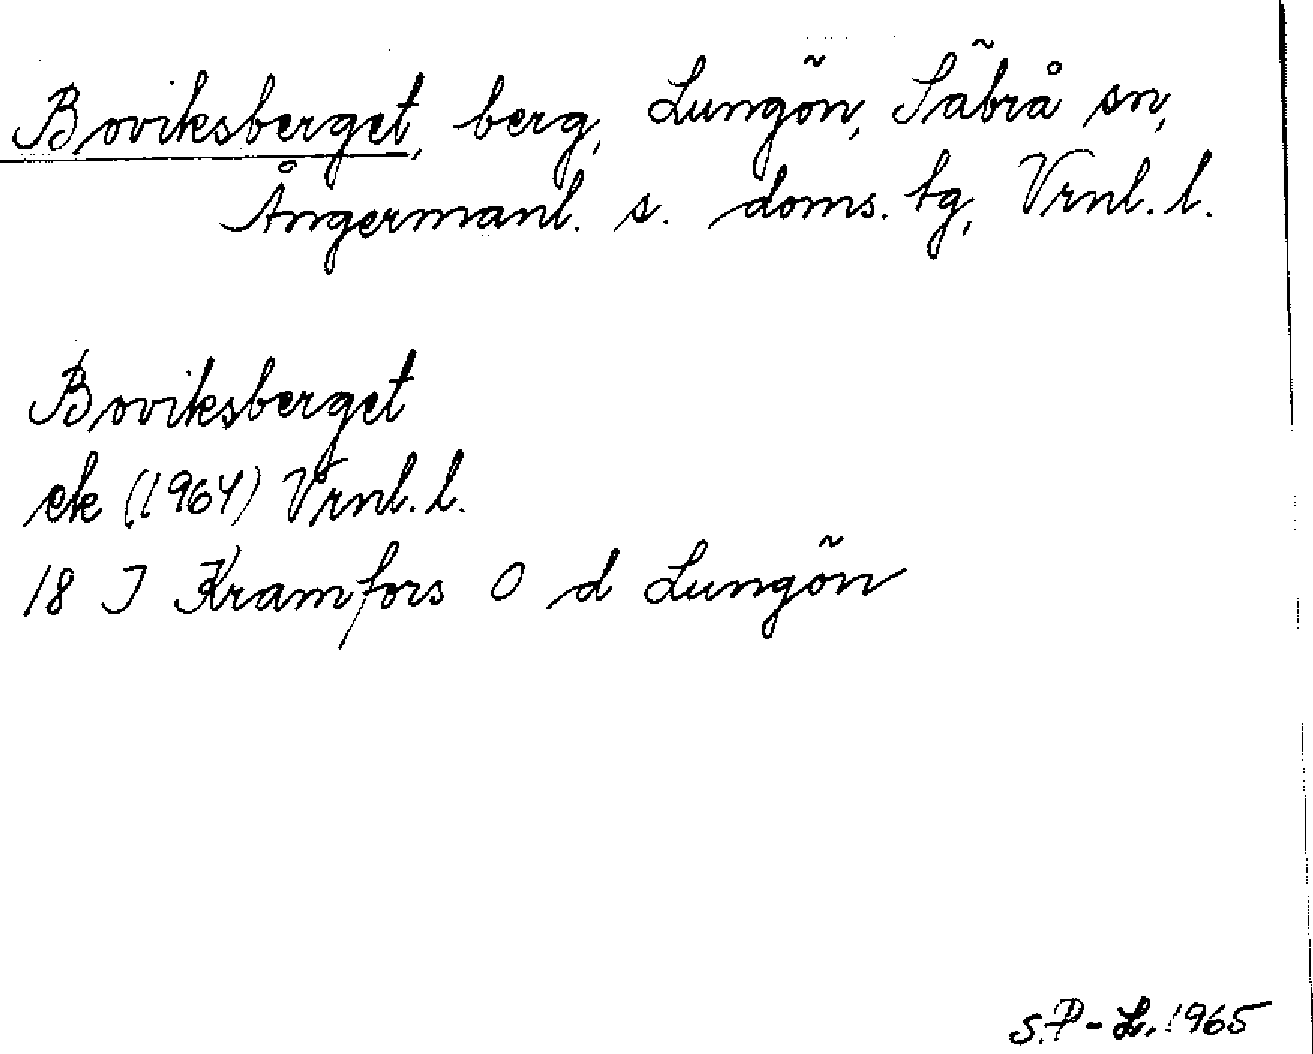 Boviksberget, berg, Lungön, Säbrå sn,
Ångermanl. s. doms. tg, Vrnl. l.
Boviksberget
ek (1964) Vrnl. l.
18 J Kramfors O d Lungön
S.P-L. 1965